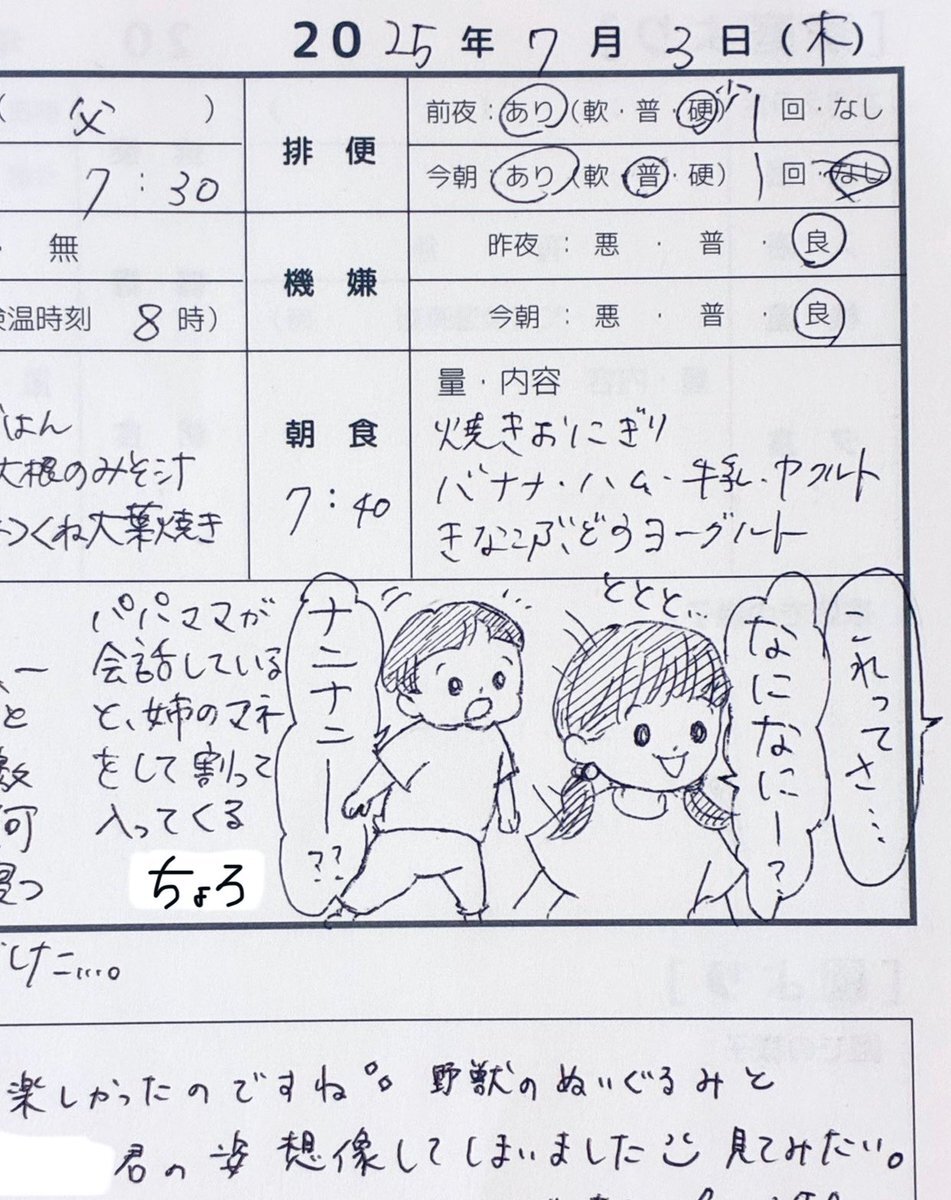 2025年 7月 3日 (木)
(父)
7:30
・ 無
検温時刻 8時)
ごはん
大根のみそ汁
つくね大葉焼き
排便
前夜:あり(軟・普・硬)少 1回・なし
今朝:あり(軟・普・硬) 1回・なし
機嫌
昨夜:悪・普・良
今朝:悪・普・良
朝食
7:40
量・内容
焼きおにぎり
バナナ・ハム・牛乳・ヤクルト
きなこぶどうヨーグルト
パパママが
会話している
と、姉のマネ
をして割って
入ってくる
ちょろ
これってさ…
なになにー?
ととと…
ナニナニー??
ー
と
数
何
した…。
楽しかったのですね。野獣のぬいぐるみと
君の姿 想像してしまいました 見てみたい。